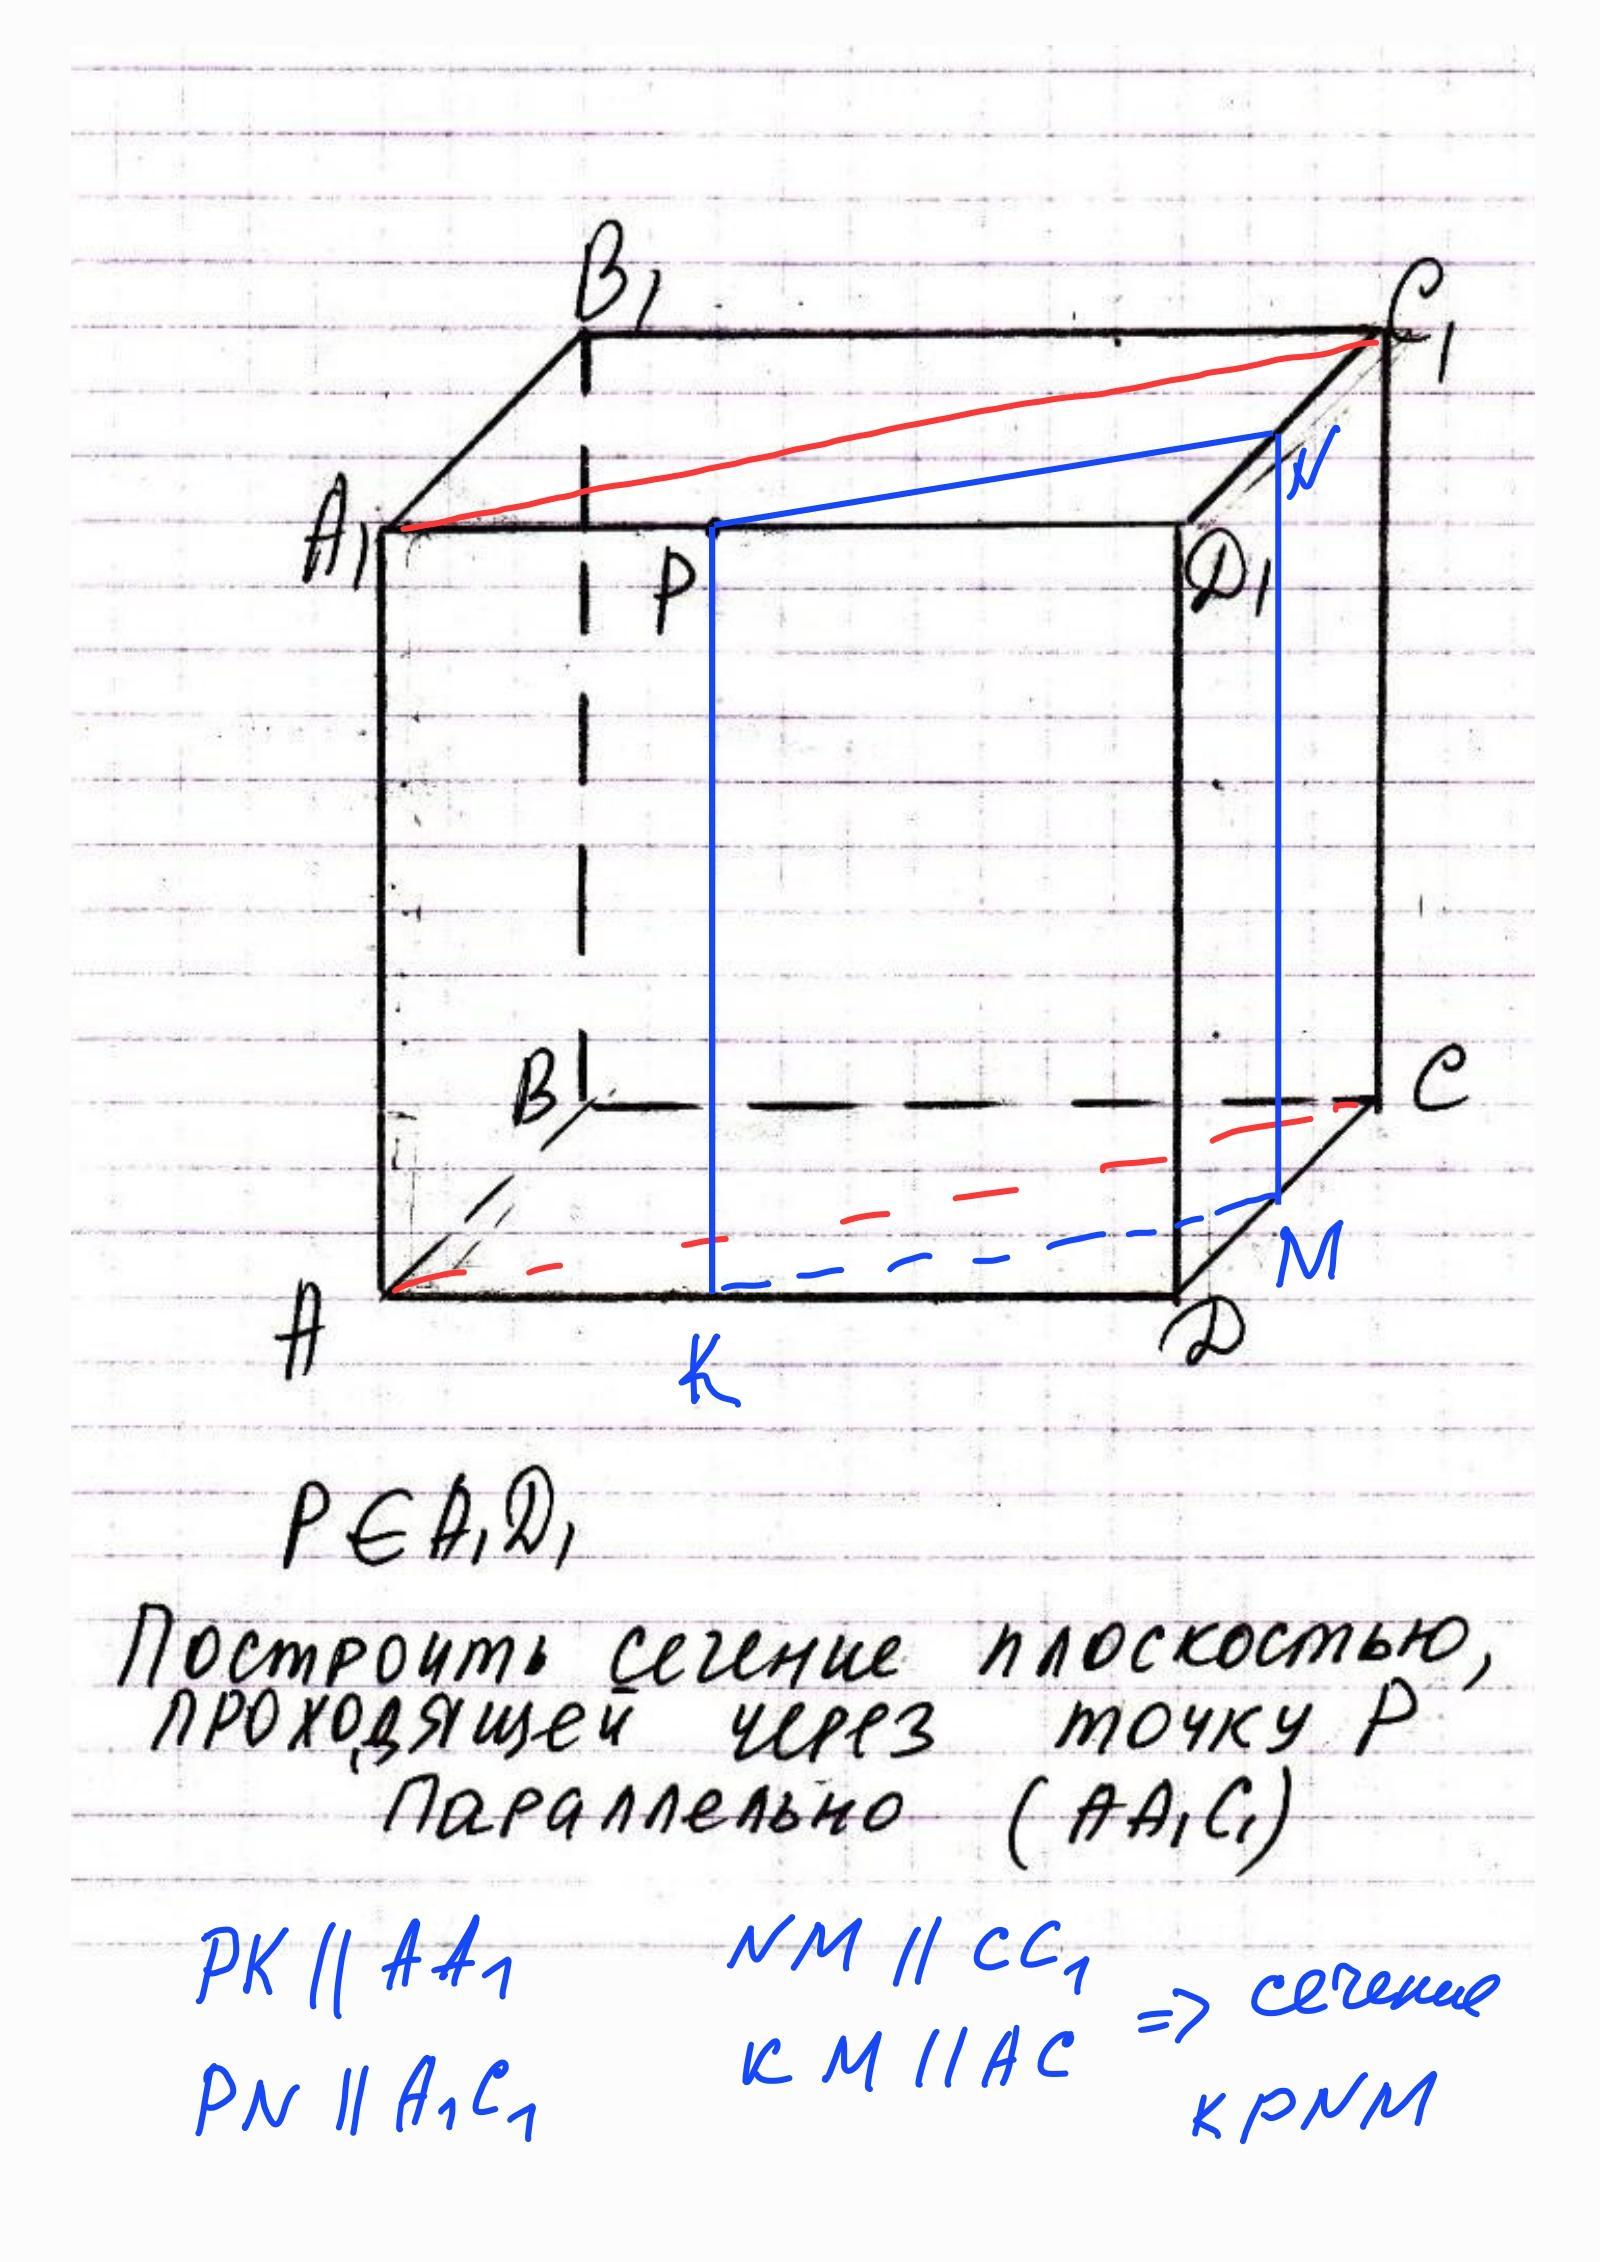 B₁
C₁
A₁
P
D₁
N
B
C
A
D
M
K
P ∈ A₁D₁
Построить сечение плоскостью,
проходящей через точку P
параллельно (AA₁C₁)
PK || AA₁
NM || CC₁
=> сечение
PN || A₁C₁
KM || AC
KPNM